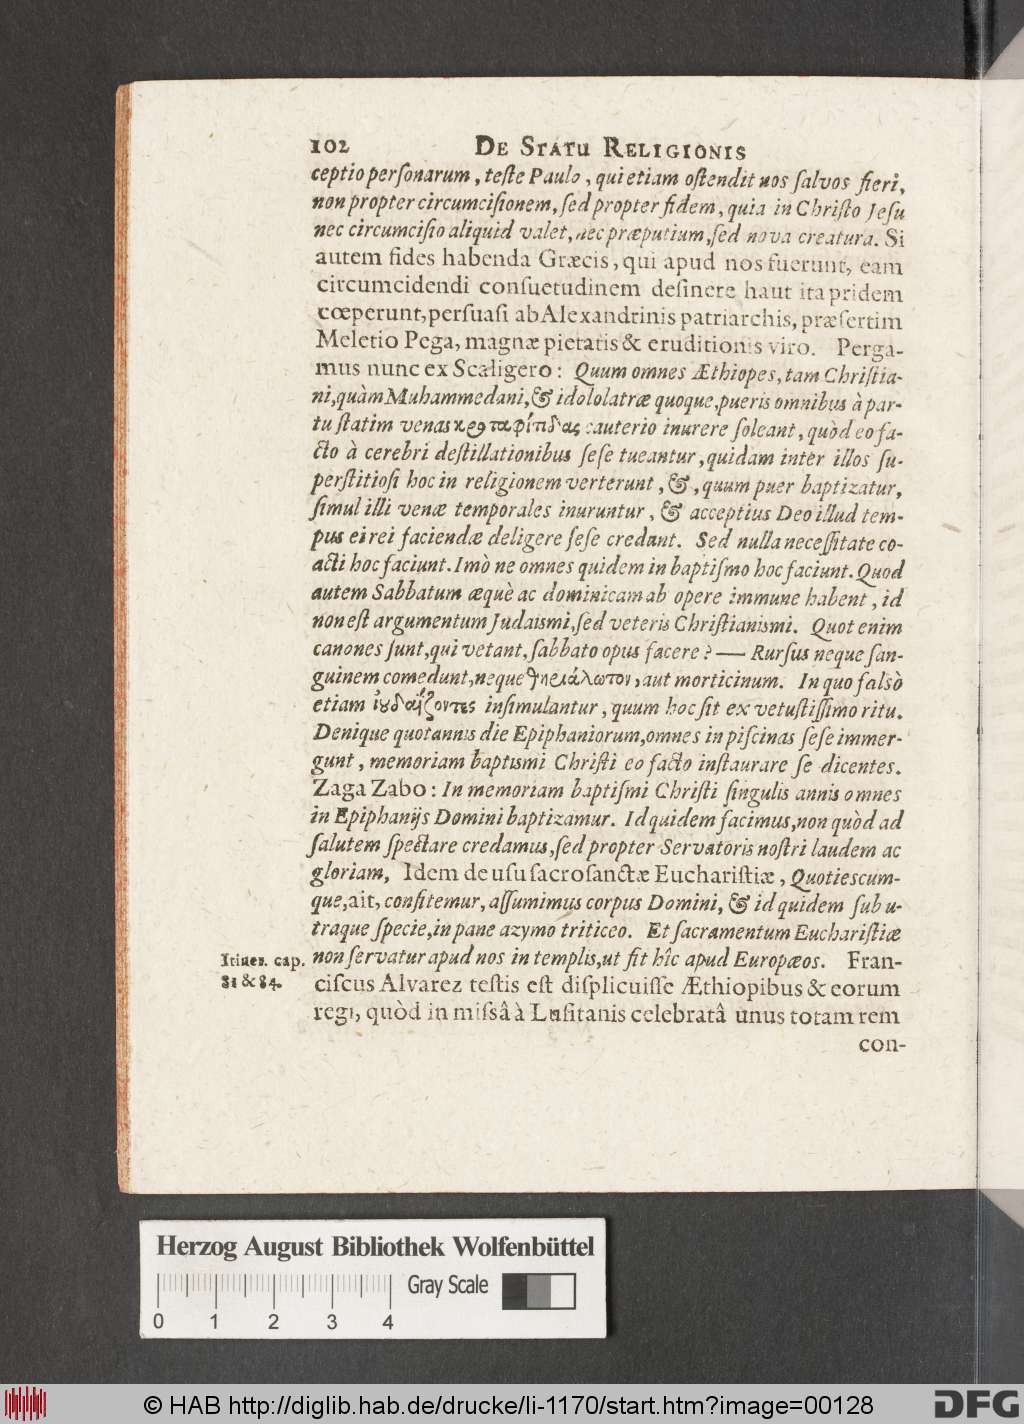 102 De Statu Religionis
ceptio personarum, teste Paulo, qui etiam ostendit nos salvos fieri,
non propter circumcisionem, sed propter fidem, quia in Christo Jesu
nec circumcisio aliquid valet, nec præputium, sed nova creatura. Si
autem fides habenda Græcis, qui apud nos fuerunt, eam
circumcidendi consuetudinem desinere haut ita pridem
cœperunt, persuasi ab Alexandrinis patriarchis, præsertim
Meletio Pega, magnæ pietatis & eruditionis viro. Perga-
mus nunc ex Scaligero: Quum omnes Æthiopes, tam Christia-
ni, quàm Muhammedani, & idololatræ quoque, pueris omnibus à par-
tu statim venas κροταφίτιδας cauterio inurere soleant, quòd eo fa-
cto à cerebri destillationibus sese tueantur, quidam inter illos su-
perstitiosi hoc in religionem verterunt, &, quum puer baptizatur,
simul illi venæ temporales inuruntur, & acceptius Deo illud tem-
pus ei rei faciendæ deligere sese credunt. Sed nulla necessitate co-
acti hoc faciunt. Imò ne omnes quidem in baptismo hoc faciunt. Quod
autem Sabbatum æquè ac dominicam ab opere immune habent, id
non est argumentum Judaismi, sed veteris Christianismi. Quot enim
canones sunt, qui vetant, sabbato opus facere? — Rursus neque san-
guinem comedunt, neque θηριάλωτον, aut morticinum. In quo falsò
etiam ἰουδαΐζοντες insimulantur, quum hoc sit ex vetustissimo ritu.
Denique quotannis die Epiphaniorum, omnes in piscinas sese immer-
gunt, memoriam baptismi Christi eo facto instaurare se dicentes.
Zaga Zabo: In memoriam baptismi Christi singulis annis omnes
in Epiphanijs Domini baptizamur. Id quidem facimus, non quòd ad
salutem spectare credamus, sed propter Servatoris nostri laudem ac
gloriam, Idem de usu sacrosanctæ Eucharistiæ, Quotiescum-
que, ait, confitemur, assumimus corpus Domini, & id quidem sub u-
traque specie, in pane azymo triticeo. Et sacramentum Eucharistiæ
non servatur apud nos in templis, ut fit hîc apud Europæos. Fran-
ciscus Alvarez testis est displicuisse Æthiopibus & eorum
regi, quòd in missâ à Lusitanis celebratâ unus totam rem
con-
Itiner. cap.
81 & 84.
Herzog August Bibliothek Wolfenbüttel
Gray Scale
0 1 2 3 4
© HAB http://diglib.hab.de/drucke/li-1170/start.htm?image=00128
DFG